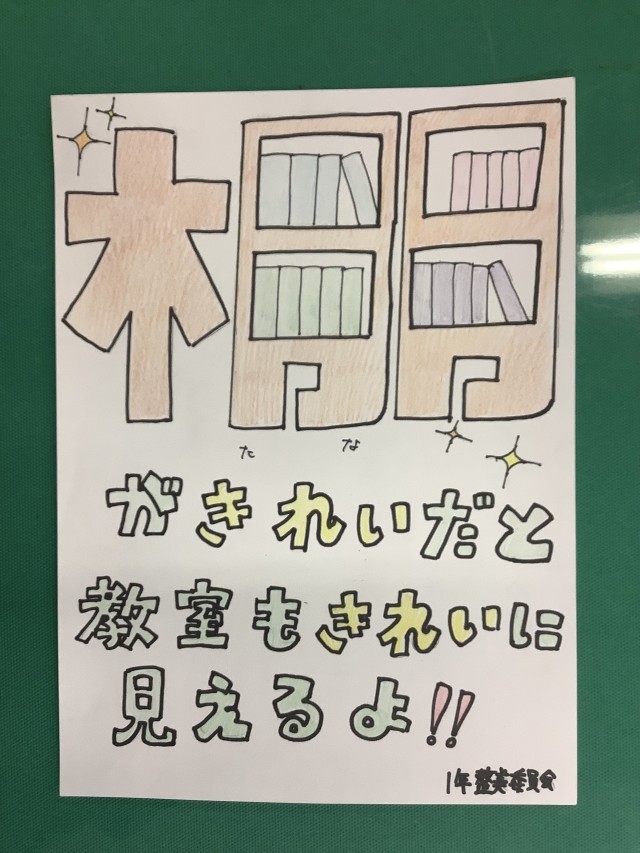 棚
たな
がきれいだと
教室もきれいに
見えるよ!!
1年 整美委員会